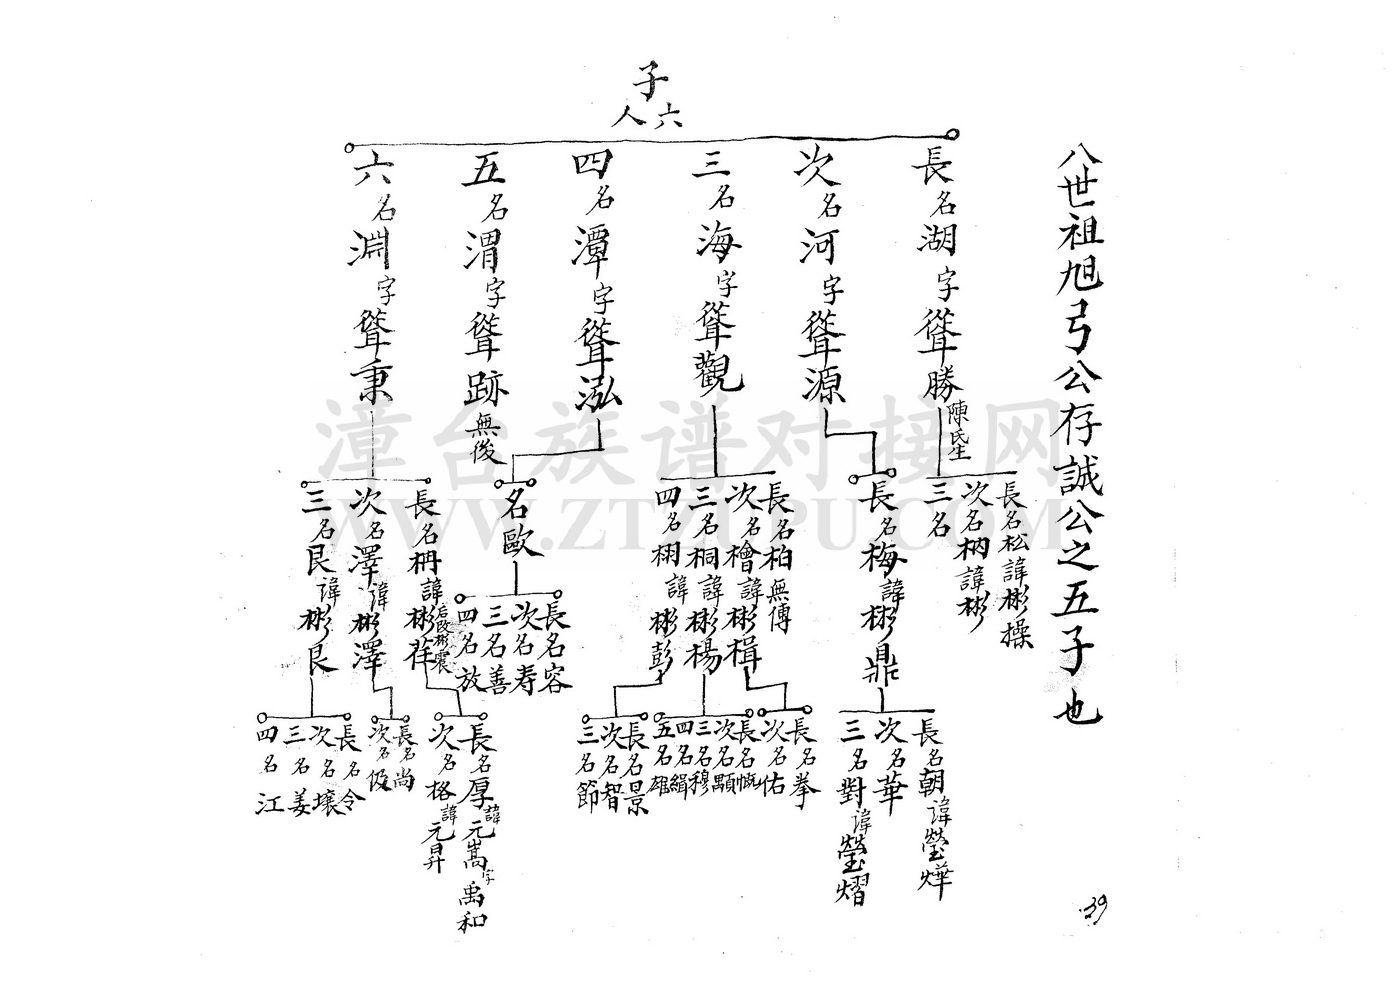 八世祖旭弓公存誠公之五子也
子
六人
長名湖字聳勝
陳氏生
長名松諱彬操
次名枘諱彬
三名
次名河字聳源
長名梅諱彬鼎
長名朝諱瑩燁
次名華
三名對諱瑩熠
三名海字聳觀
長名柏無傳
次名檜諱彬楫
三名桐諱彬楊
四名栩諱彬彭
長名拳
次名佑
長名慨
次名顒
三名穆
四名緝
五名雄
長名景
次名智
三名節
四名潭字聳泓
名歐
長名容
次名寿
三名善
四名放
五名渭字聳跡無後
六名淵字聳秉
長名冉諱彬
后改彬震
次名澤諱彬澤
三名艮諱彬艮
長名厚諱元嵩字禹和
次名格諱元昇
長名尚
次名伋
長名令
次名壤
三名姜
四名江
39
漳台族谱对接网
WWW.ZTZUPU.COM